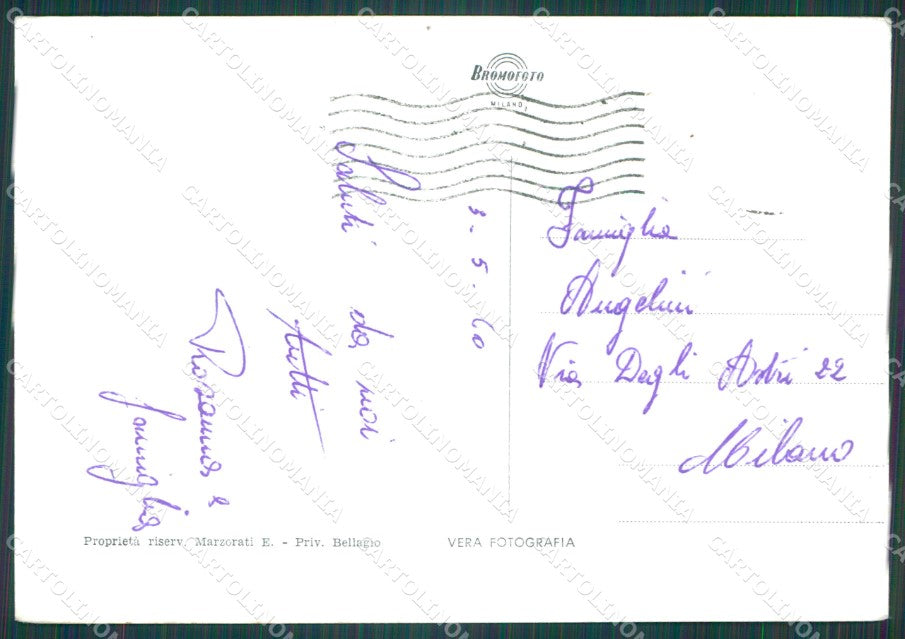 BROMOFOTO
MILANO
3-5-60
Saluti da noi
tutti
Rosanna e
famiglia
Famiglia
Angelini
Via Degli Astri 22
Milano
Proprietà riserv. Marzorati E. - Priv. Bellagio
VERA FOTOGRAFIA
CARTOLINOMANIA